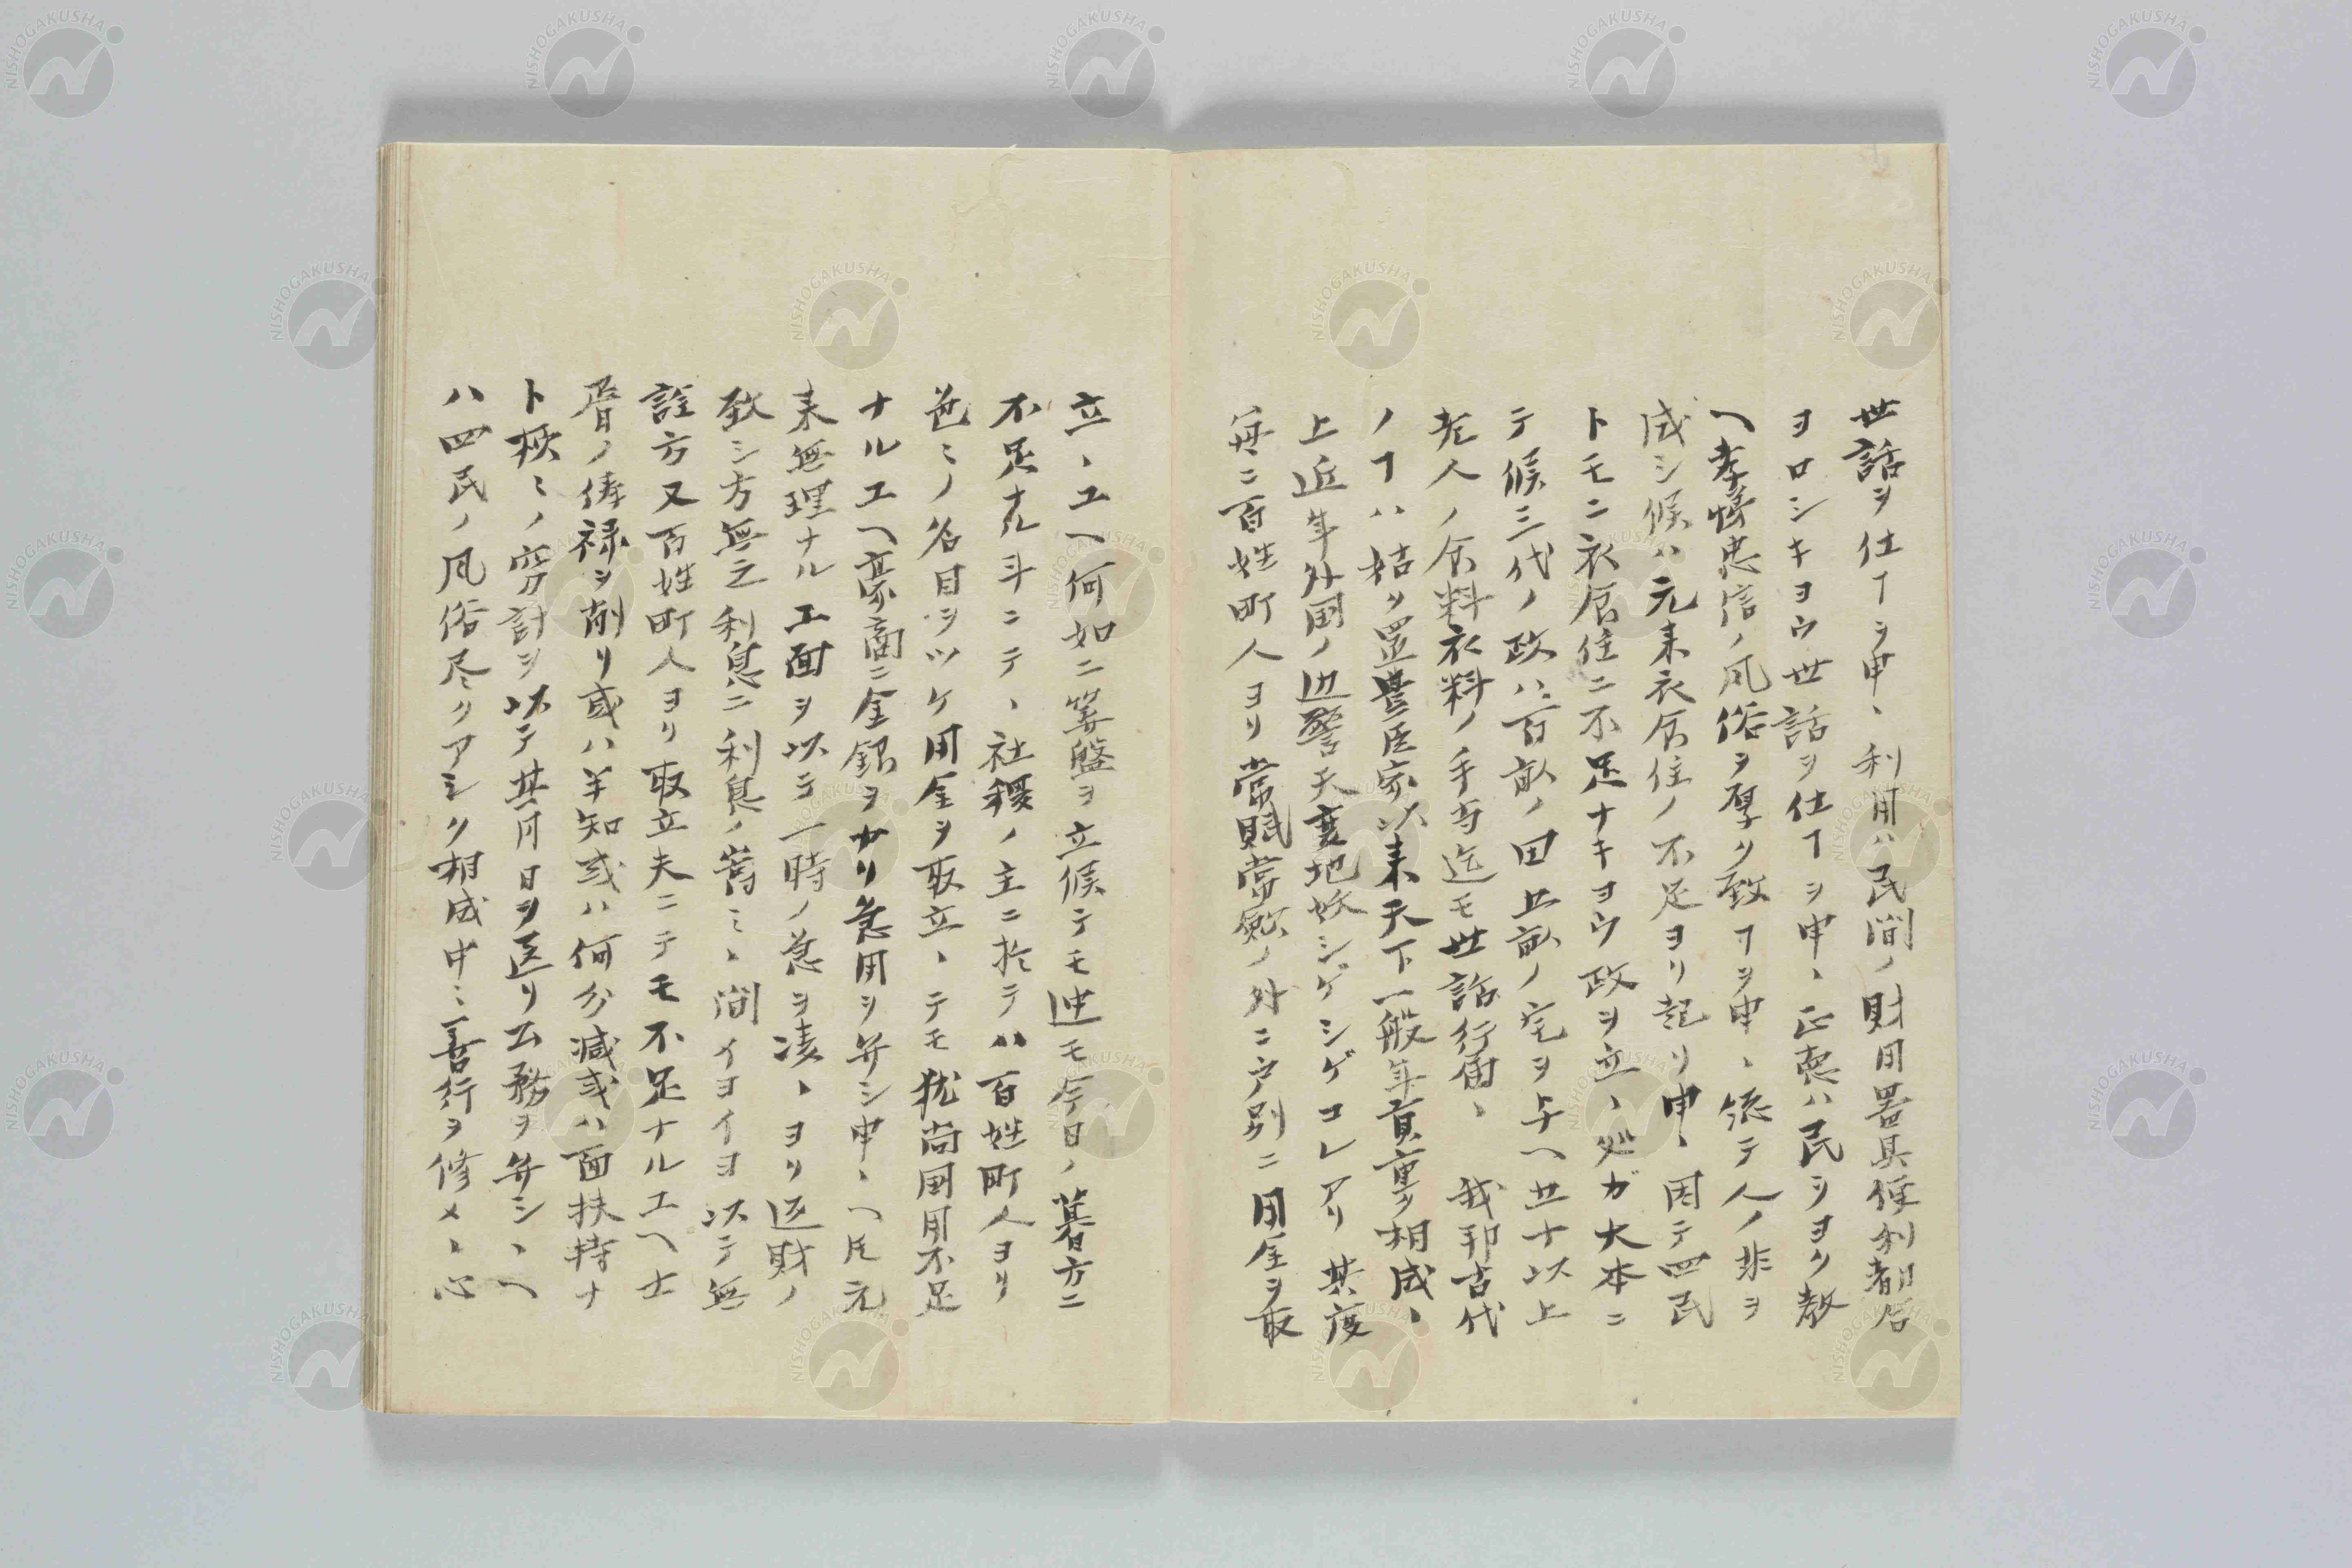 世話ヲ仕ヿヲ申、利用ハ民間ノ財用器具便利都合
ヨロシキヨウ世話ヲ仕ヿヲ申、正徳ハ民ヲヨク教
ヘ孝悌忠信ノ風俗ヲ厚ク致ヿヲ申、総テ人ノ非ヲ
成シ候ハ元来衣食住ノ不足ヨリ起リ申、因テ四民
トモニ衣食住ニ不足ナキヨウ政ヲ立、処ガ大本ニ
テ候三代ノ政ハ百畝ノ田五畝ノ宅ヲ与ヘ五十以上
老人ノ食料衣料ノ手当迄モ世話行届、 我邦古代
ノヿハ姑ク置豊臣家以来天下一般年貢重ク相成、
上近年外国ノ辺警天変地妖シゲシゲコレアリ其度
毎ニ百姓町人ヨリ常賦常斂ノ外ニ戸別ニ用金ヲ取
立、エヘ何如ニ算盤ヲ立候テモ迚モ今日ノ暮方ニ
不足ナル斗ニテ、社稷ノ主ニ於テハ百姓町人ヨリ
色ミノ名目ヲツケ用金ヲ取立、テモ猶尚国用不足
ナルエヘ豪商ニ金銀ヲカリ急用ヲ弁シ申、ヘ𪜈元
来無理ナル工面ヲ以テ一時ノ急ヲ凌、ヨリ返財ノ
致シ方無之利息ニ利息ノ嵩ミ、間イヨイヨ以テ無
詮方又百姓町人ヨリ取立夫ニテモ不足ナルエヘ士
層ノ俸禄ヲ削リ或ハ半知或ハ何分減或ハ面扶持ナ
ト様ミノ窮計ヲ以テ其月日ヲ送リ公務ヲ弁シ、ヘ
ハ四民ノ風俗尽クアシク相成申ミ善行ヲ修メ、心